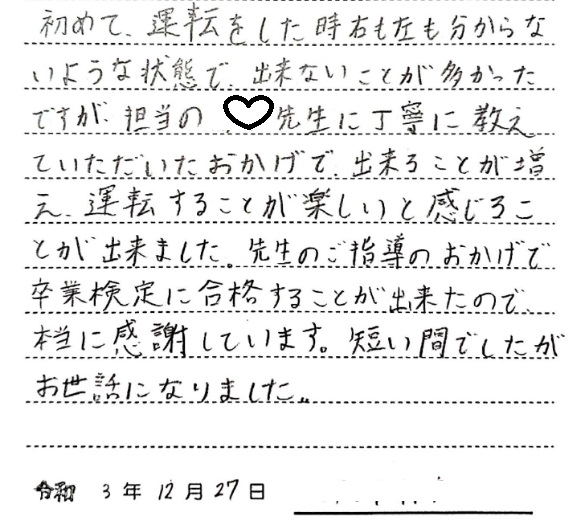 初めて、運転をした時右も左も分からな
いような状態で、出来ないことが多かった
ですが、担当の 先生に丁寧に教え
ていただいたおかげで、出来ることが増
え、運転することが楽しいと感じるこ
とが出来ました。先生のご指導のおかげで
卒業検定に合格することが出来たので、
本当に感謝しています。短い間でしたが
お世話になりました。
令和 3年 12月 27日